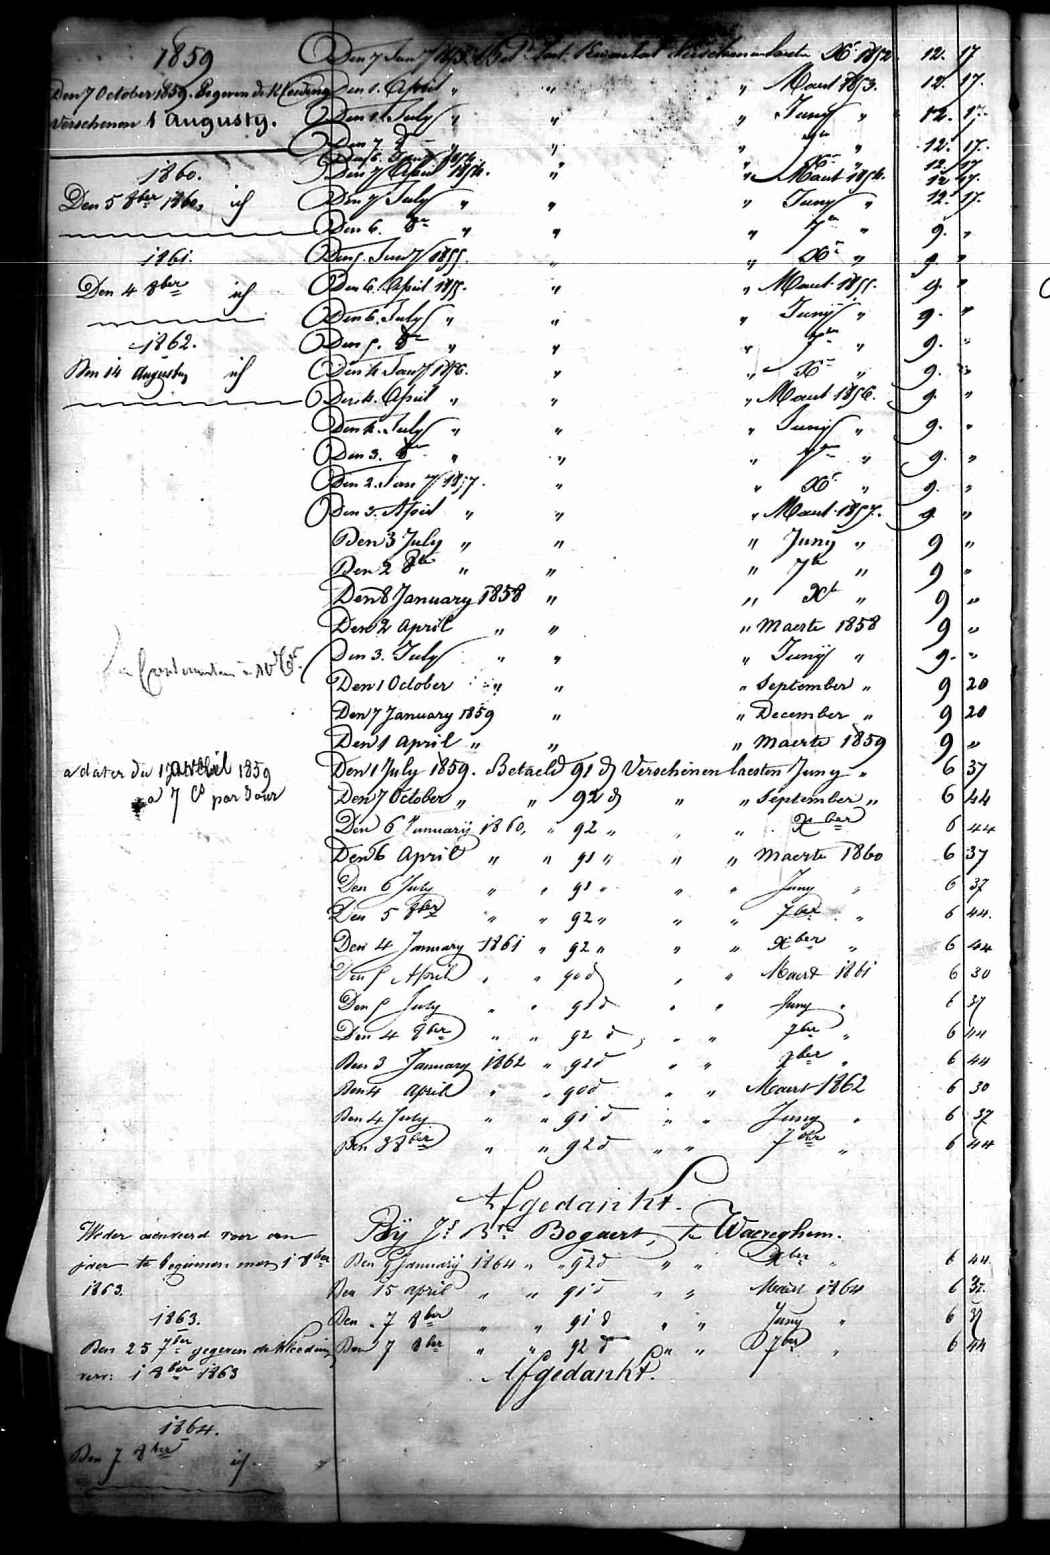 1859
Den 7 October 1859. Gegeven de Kleeding
Verschenen 1 Augusty.
1860.
Den 5 8ber 1860, id
1861.
Den 4 8ber id
1862.
Den 14 Augusty id
a dater du 1 1859
a 7 Cs par Jour
Weder aenveerd voor een
jaer te beginnen met 1 8ber
1863.
1863.
Den 25 7ber gegeven de Kleeding
vers: 1 8ber 1863
1864.
Den 7 8ber id.
Den 7 Jan 1853 Xbr 1852 12. 17
Den 1. April " " " Maert 1853. 12. 17.
Den 1. July " " " Juny " 12. 17.
Den 7. 8br " " " 7br " 12. 17.
Den 6. 1854 " " Xbr " 12. 17
Den 7 April 1854. " " Maert 1854. 12 17.
Den 7 July " " " Juny " 12. 17.
Den 6. 8br " " " 7br " 9. "
Den 5. Jan 1855. " " Xbr " 9. "
Den 6. April 1855. " " Maert 1855. 9. "
Den 6. July " " " Juny " 9. "
Den 5. 8br " " " 7br " 9. "
Den 4 Jan 1856. " " Xbr " 9. "
Den 4. April " " " Maert 1856. 9. "
Den 4. July " " " Juny " 9. "
Den 3. 8br " " " 7br " 9. "
Den 2. Jan 1857. " " Xbr " 9. "
Den 3. April " " " Maert 1857. 9. "
Den 3 July " " " Juny " 9 "
Den 2 8br " " " 7br " 9 "
Den 8 January 1858 " " Xbr " 9 "
Den 2 April " " " Maerte 1858 9 "
Den 3. July " " " Juny " 9. "
Den 1 October " " " September " 9 20
Den 7 January 1859 " " December " 9 20
Den 1 April " " " Maerte 1859 9 "
Den 1 July 1859. Betaeld 91 d Verschenen laesten Juny " 6 37
Den 7 October " " 92 d " " September " 6 44
Den 6 January 1860, " 92 " " " Xber 6 44
Den 6 April " " 91 " " " Maerte 1860 6 37
Den 6 July " " 91 " " " Juny " 6 37
Den 5 8ber " " 92 " " " 7ber " 6 44.
Den 4 January 1861 " 92 " " " Xber " 6 44
Den 5 April " " 90 d " " Maert 1861 6 30
Den 5 July " " 91 d " " Juny " 6 37
Den 4 8ber " " 92 d " " 7ber " 6 44
Den 3 January 1862 " 92 d " " Xber " 6 44
Den 4 April " " 90 d " " Maert 1862 6 30
Den 4 July " " 91 d " " Juny " 6 37
Den 3 8ber " " 92 d " " 7ber " 6 44
Afgedankt.
Bij Bogaert, te Waereghem.
Den 8 January 1864 " " 92 d " " Xber " 6 44
Den 15 April " " 91 d " " Maert 1864 6 37.
Den 7 8ber " " 91 d " " Juny " 6 37
Den 7 8ber " " 92 d " " 7ber " 6 44
Afgedankt.